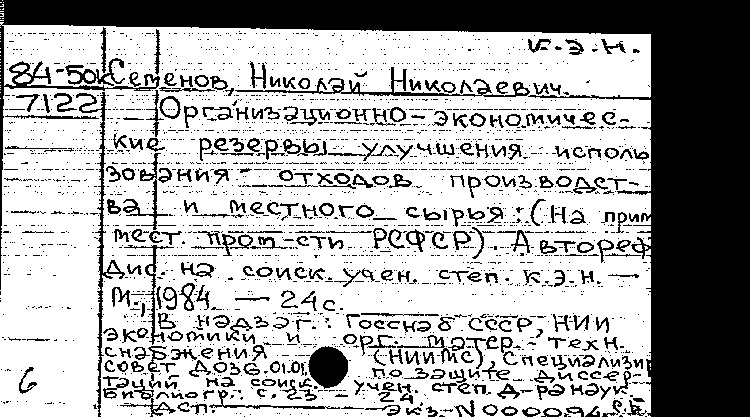 к.э.н.
84-50к Семенов, Николай Николаевич.
7122 Организационно-экономичес-
кие резервы улучшения исполь
зования отходов производст-
ва и местного сырья: (На прим
мест. пром-сти РСФСР). Автореф
дис. на соиск. учен. степ. к.э.н. —
М., 1984. — 24 с.
В надзаг.: Госснаб СССР, НИИ
экономики и орг. матер.-техн.
снабжения (НИИМС), Специализир
совет Д 036.01.01 по защите диссер-
таций на соиск. учен. степ. д-ра наук
Библиогр.: с. 23 - 24
6